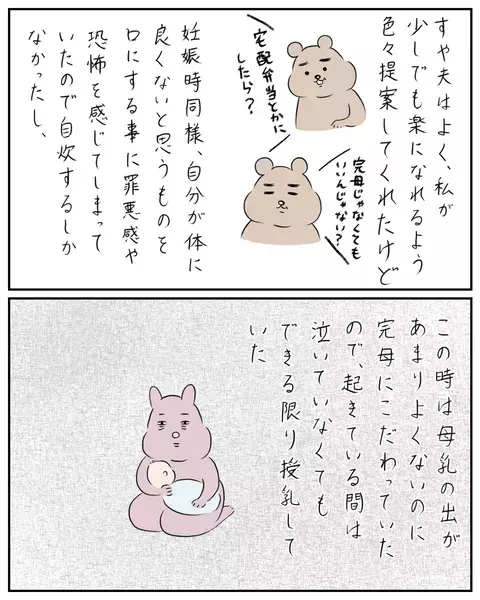 すや夫はよく、私が
少しでも楽になれるよう
色々提案してくれたけど
宅配弁当とかに
したら？
完母じゃなくても
いいんじゃない？
妊娠時同様、自分が体に
良くないと思うものを
口にする事に罪悪感や
恐怖を感じてしまって
いたので自炊するしか
なかったし、
この時は母乳の出が
あまりよくないのに
完母にこだわっていた
ので、起きている間は
泣いていなくても
できる限り授乳して
いた